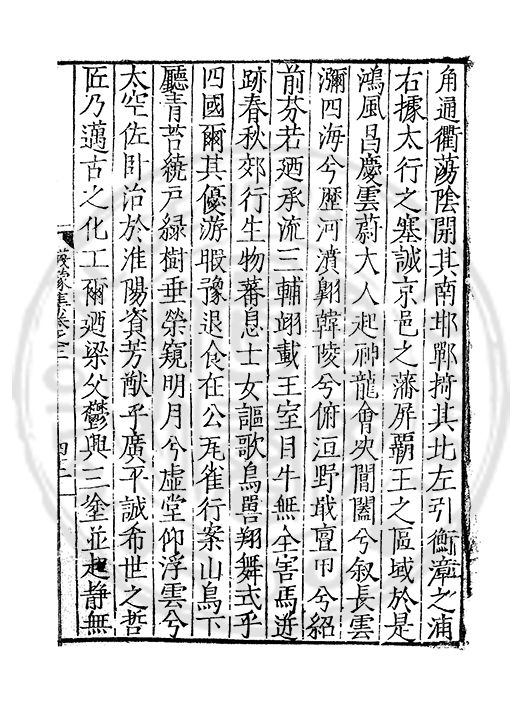 角通衢蕩陰開其南邯鄲掎其北左引衡漳之浦
右據太行之塞誠京邑之藩屏霸王之區域於是
鴻風昌慶雲蔚大人起神龍會决閶闔兮叙長雲
瀰四海兮歷河濆翺韓陵兮俯洹野戢亶甲兮紹
前芬若廼承流三輔翊載王室目牛無全害馬逬
跡春秋郊行生物蕃息士女謳歌鳥獸翔舞式乎
四國爾其優游暇豫退食在公瓦雀行案山鳥下
廳青苔繞戸緑樹垂榮窺明月兮虚堂仰浮雲兮
太空佐卧治於淮陽資芳猷乎廣平誠希世之哲
匠乃邁古之化工爾廼梁父鬱興三釡並起静無
卷之二